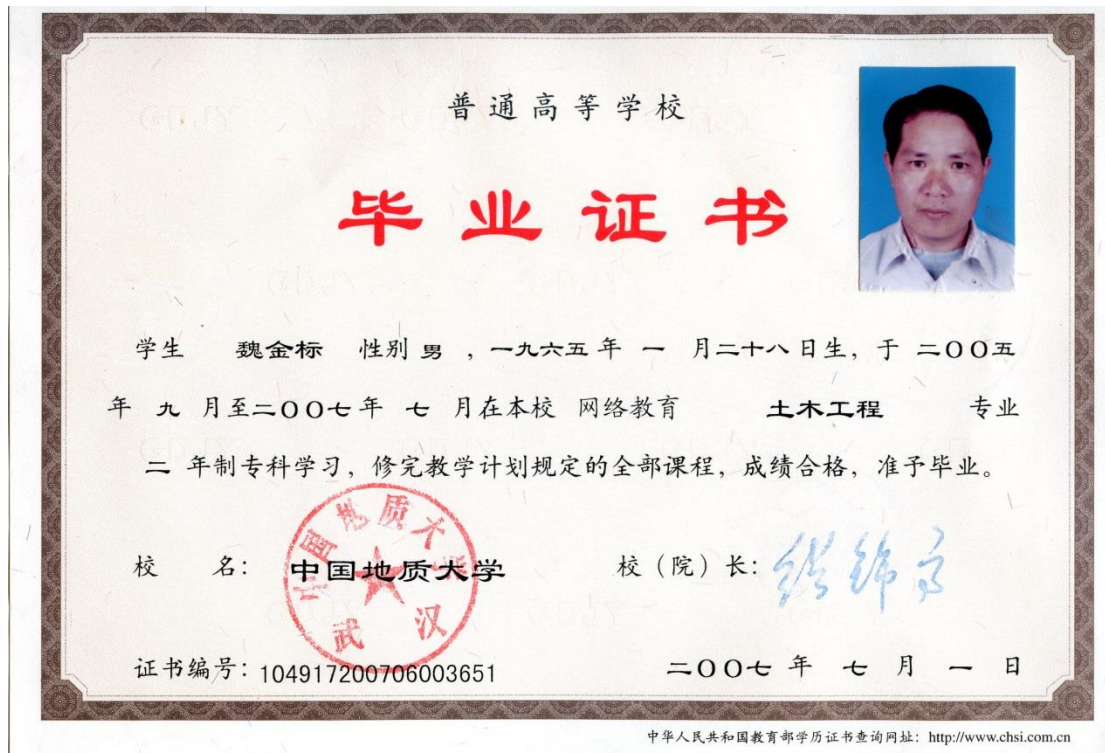 普通高等学校
毕业证书
学生 魏金标 性别 男 ，一九六五年 一 月二十八日生，于 二OO五
年 九 月至二OO七年 七 月在本校 网络教育 土木工程 专业
二 年制专科学习，修完教学计划规定的全部课程，成绩合格，准予毕业。
中国地质大学
武汉
校 名： 中国地质大学 校（院）长：
证书编号：104917200706003651 二OO七 年 七 月 一 日
中华人民共和国教育部学历证书查询网址：http://www.chsi.com.cn